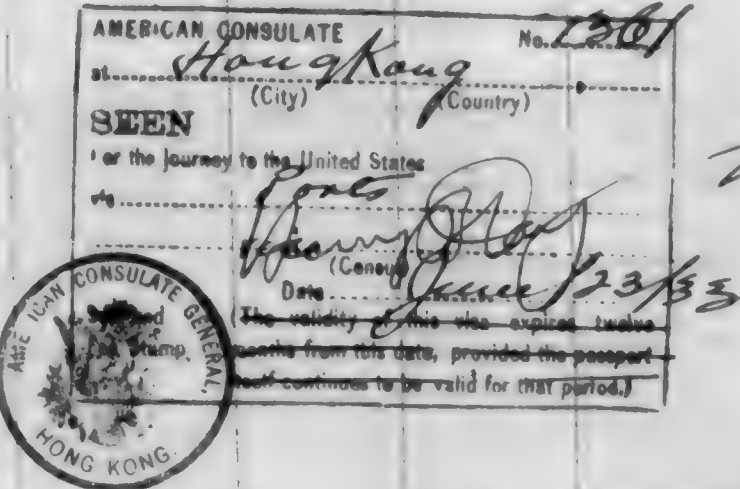 AMERICAN CONSULATE No. 1361
at Hong Kong
(City) (Country)
SEEN
for the journey to the United States
via Ports
(Consul)
Date June 23/33
(The validity of this visa expires twelve
months from this date, provided the passport
itself continues to be valid for that period.)
stamp.
AMERICAN CONSULATE GENERAL,
HONG KONG.